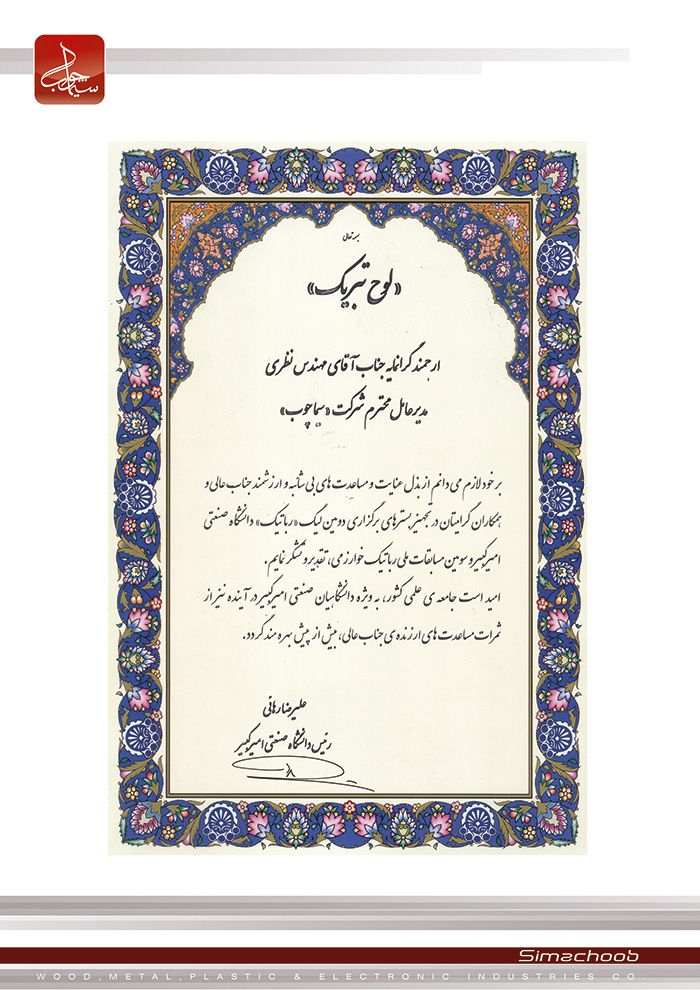 سیماچوب
بسمه تعالی
«لوح تبریک»
ارجمند گرانمایه جناب آقای مهندس نظری
مدیرعامل محترم شرکت «سیماچوب»
برخود لازم می دانم از بذل عنایت و مساعدت های بی شائبه و ارزشمند جناب عالی و
همکاران گرامیتان در تجهیز بسترهای برگزاری دومین لیگ «رباتیک» دانشگاه صنعتی
امیرکبیر و سومین مسابقات ملی رباتیک خوارزمی، تقدیر و تشکر نمایم.
امید است جامعه ی علمی کشور، به ویژه دانشگاهیان صنعتی امیرکبیر در آینده نیز از
ثمرات مساعدت های ارزنده ی جناب عالی، بیش از پیش بهره مند گردد.
علیرضا رهائی
رئیس دانشگاه صنعتی امیرکبیر
Simachoob
WOOD,METAL,PLASTIC & ELECTRONIC INDUSTRIES CO.